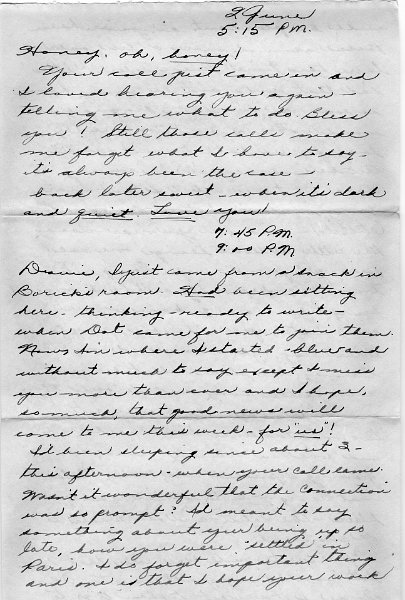 2 June
5:15 P.M.
Honey. oh, honey!
Your call just came in and
I loved hearing you again -
telling me what to do. Bless
you! Still those calls make
me forget what I have to say -
it's always been the case -
back later sweet - when it's dark
and quiet Love you!
7:45 P.M.
9:00 P.M
I just came from a snack in
room. Had been sitting
here - thinking - ready to write -
when Dot came for me to join them.
Now I'm where I started - blue and
without much to say except I miss
you more than ever and I hope,
so much, that good news will
come to me this week - for "us"!
I'd been sleeping since about 2 -
this afternoon - when your call came.
Wasn't it wonderful that the connection
was so prompt? I'd meant to say
something about your being up so
late, how you were "settled" in
Paris. I do forget important things
and one is that I hope your work